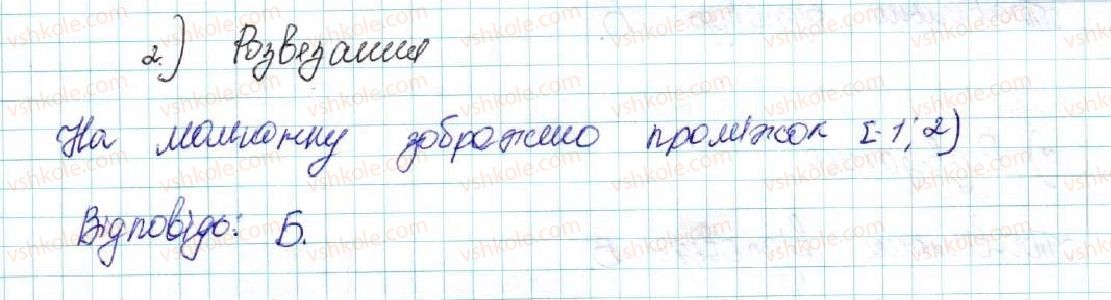 2.) Розвезання
На малюнку зображено проміжок [-1; 2)
Відповідь: Б.